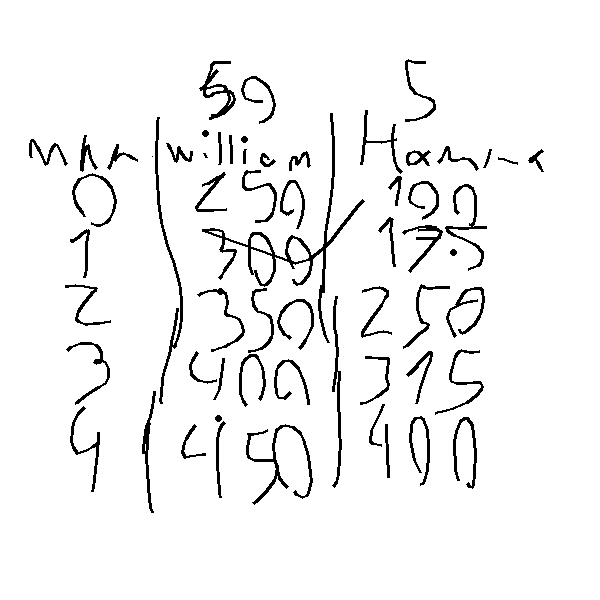 50 5
mnn William Hamina
0 250 100
1 300 175
2 350 250
3 400 315
4 450 400